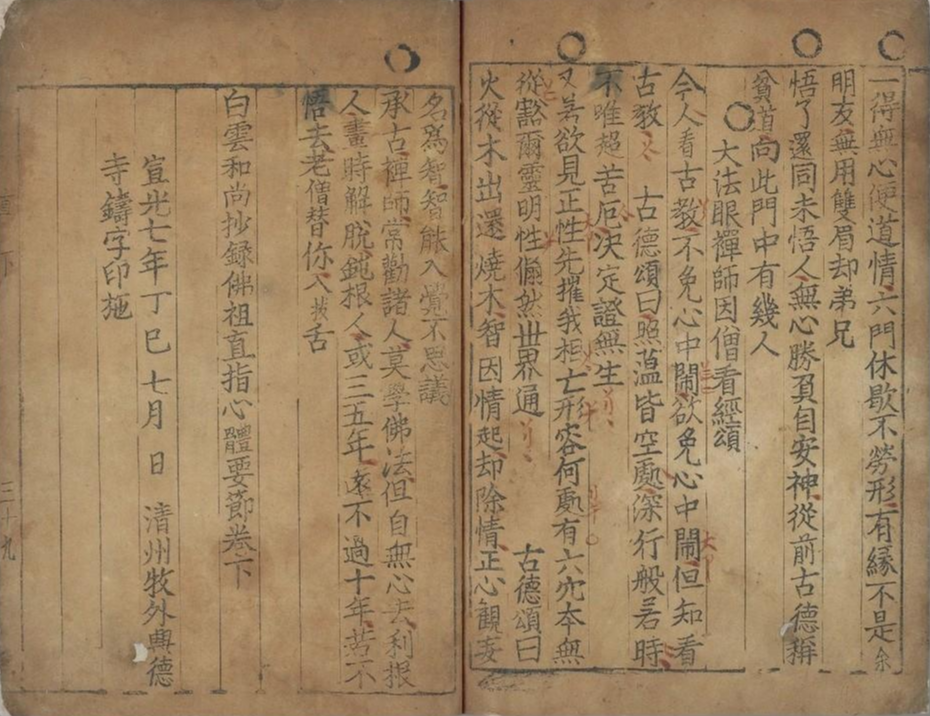 一得無心便道情六門休歇不勞形有緣不是余
明友無用雙眉却弟兄
悟了還同未悟人無心勝負自安神從前古德稱
貧道向此門中有幾人
大法眼禪師因僧看經頌
今人看古教不免心中鬧欲免心中鬧但知看
古教 古德頌曰照蕰皆空處深行般若時
不唯超苦厄決定證無生
又若欲見正性先摧我相亡形容何處有六穴本無
從豁爾靈明性翛然世界通 古德頌曰
火從木出還燒木智因情起却除情正心觀妄
名爲智智能入覺不思議
承古禪師常勸諸人莫學佛法但自無心去利根
人畫時解脫鈍根人或三五年遠不過十年若不
悟去老僧替你入拔舌
白雲和尚抄錄佛祖直指心體要節卷下
宣光七年丁巳七月 日 清州牧外興德
寺鑄字印施
下
三十九